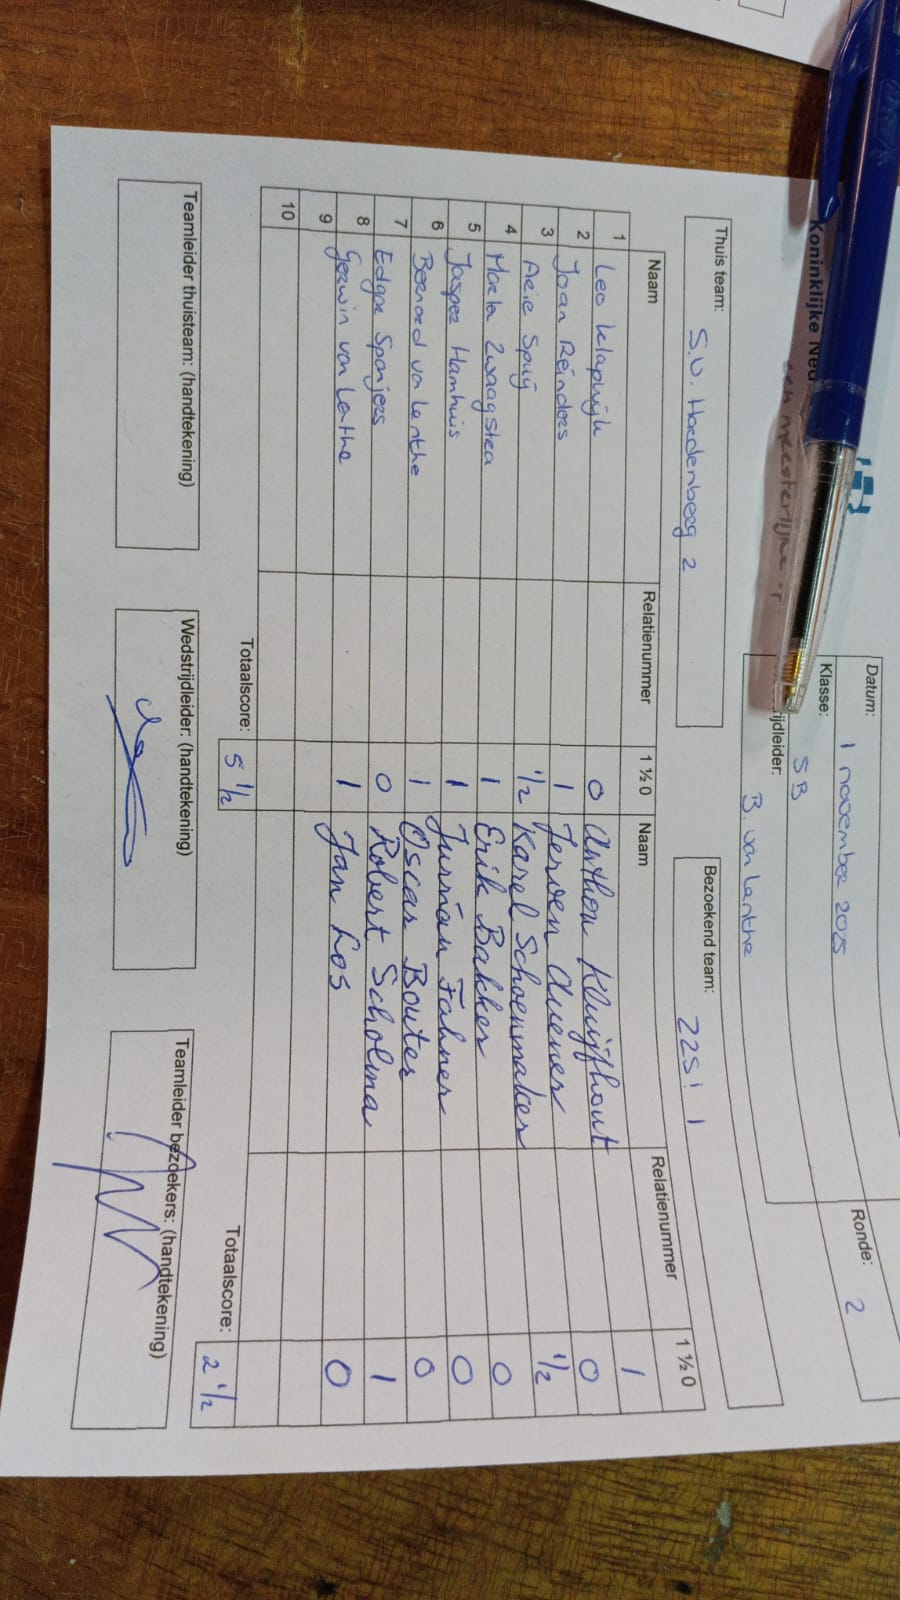 Koninklijke Ned
een meesterlijke
Datum: 1 november 2025
Ronde: 2
Klasse: SB
ijdleider: B. van Lenthe
Thuis team: S.V. Hardenberg 2
Bezoekend team: 22S! 1
Naam Relatienummer 1 ½ 0 Naam Relatienummer 1 ½ 0
1 Leo Klapwijk 0 Anthon Kluijfhout 1
2 Joan Reinders 1 Jeroen 0
3 Arie Spuij ½ Karel Schoenmaker ½
4 Marta Zwaagstra 1 Erik Bakker 0
5 Jasper Hamhuis 1 Jurriän Fahner 0
6 Berend van Lenthe 1 Oscar Bouter 0
7 Edgar Spanjers 0 Robert Scholma 1
8 Gerwin van Lenthe 1 Jan Los 0
9
10
Totaalscore: 5 ½ Totaalscore: 2 ½
Teamleider thuisteam: (handtekening) Wedstrijdleider: (handtekening) Teamleider bezoekers: (handtekening)